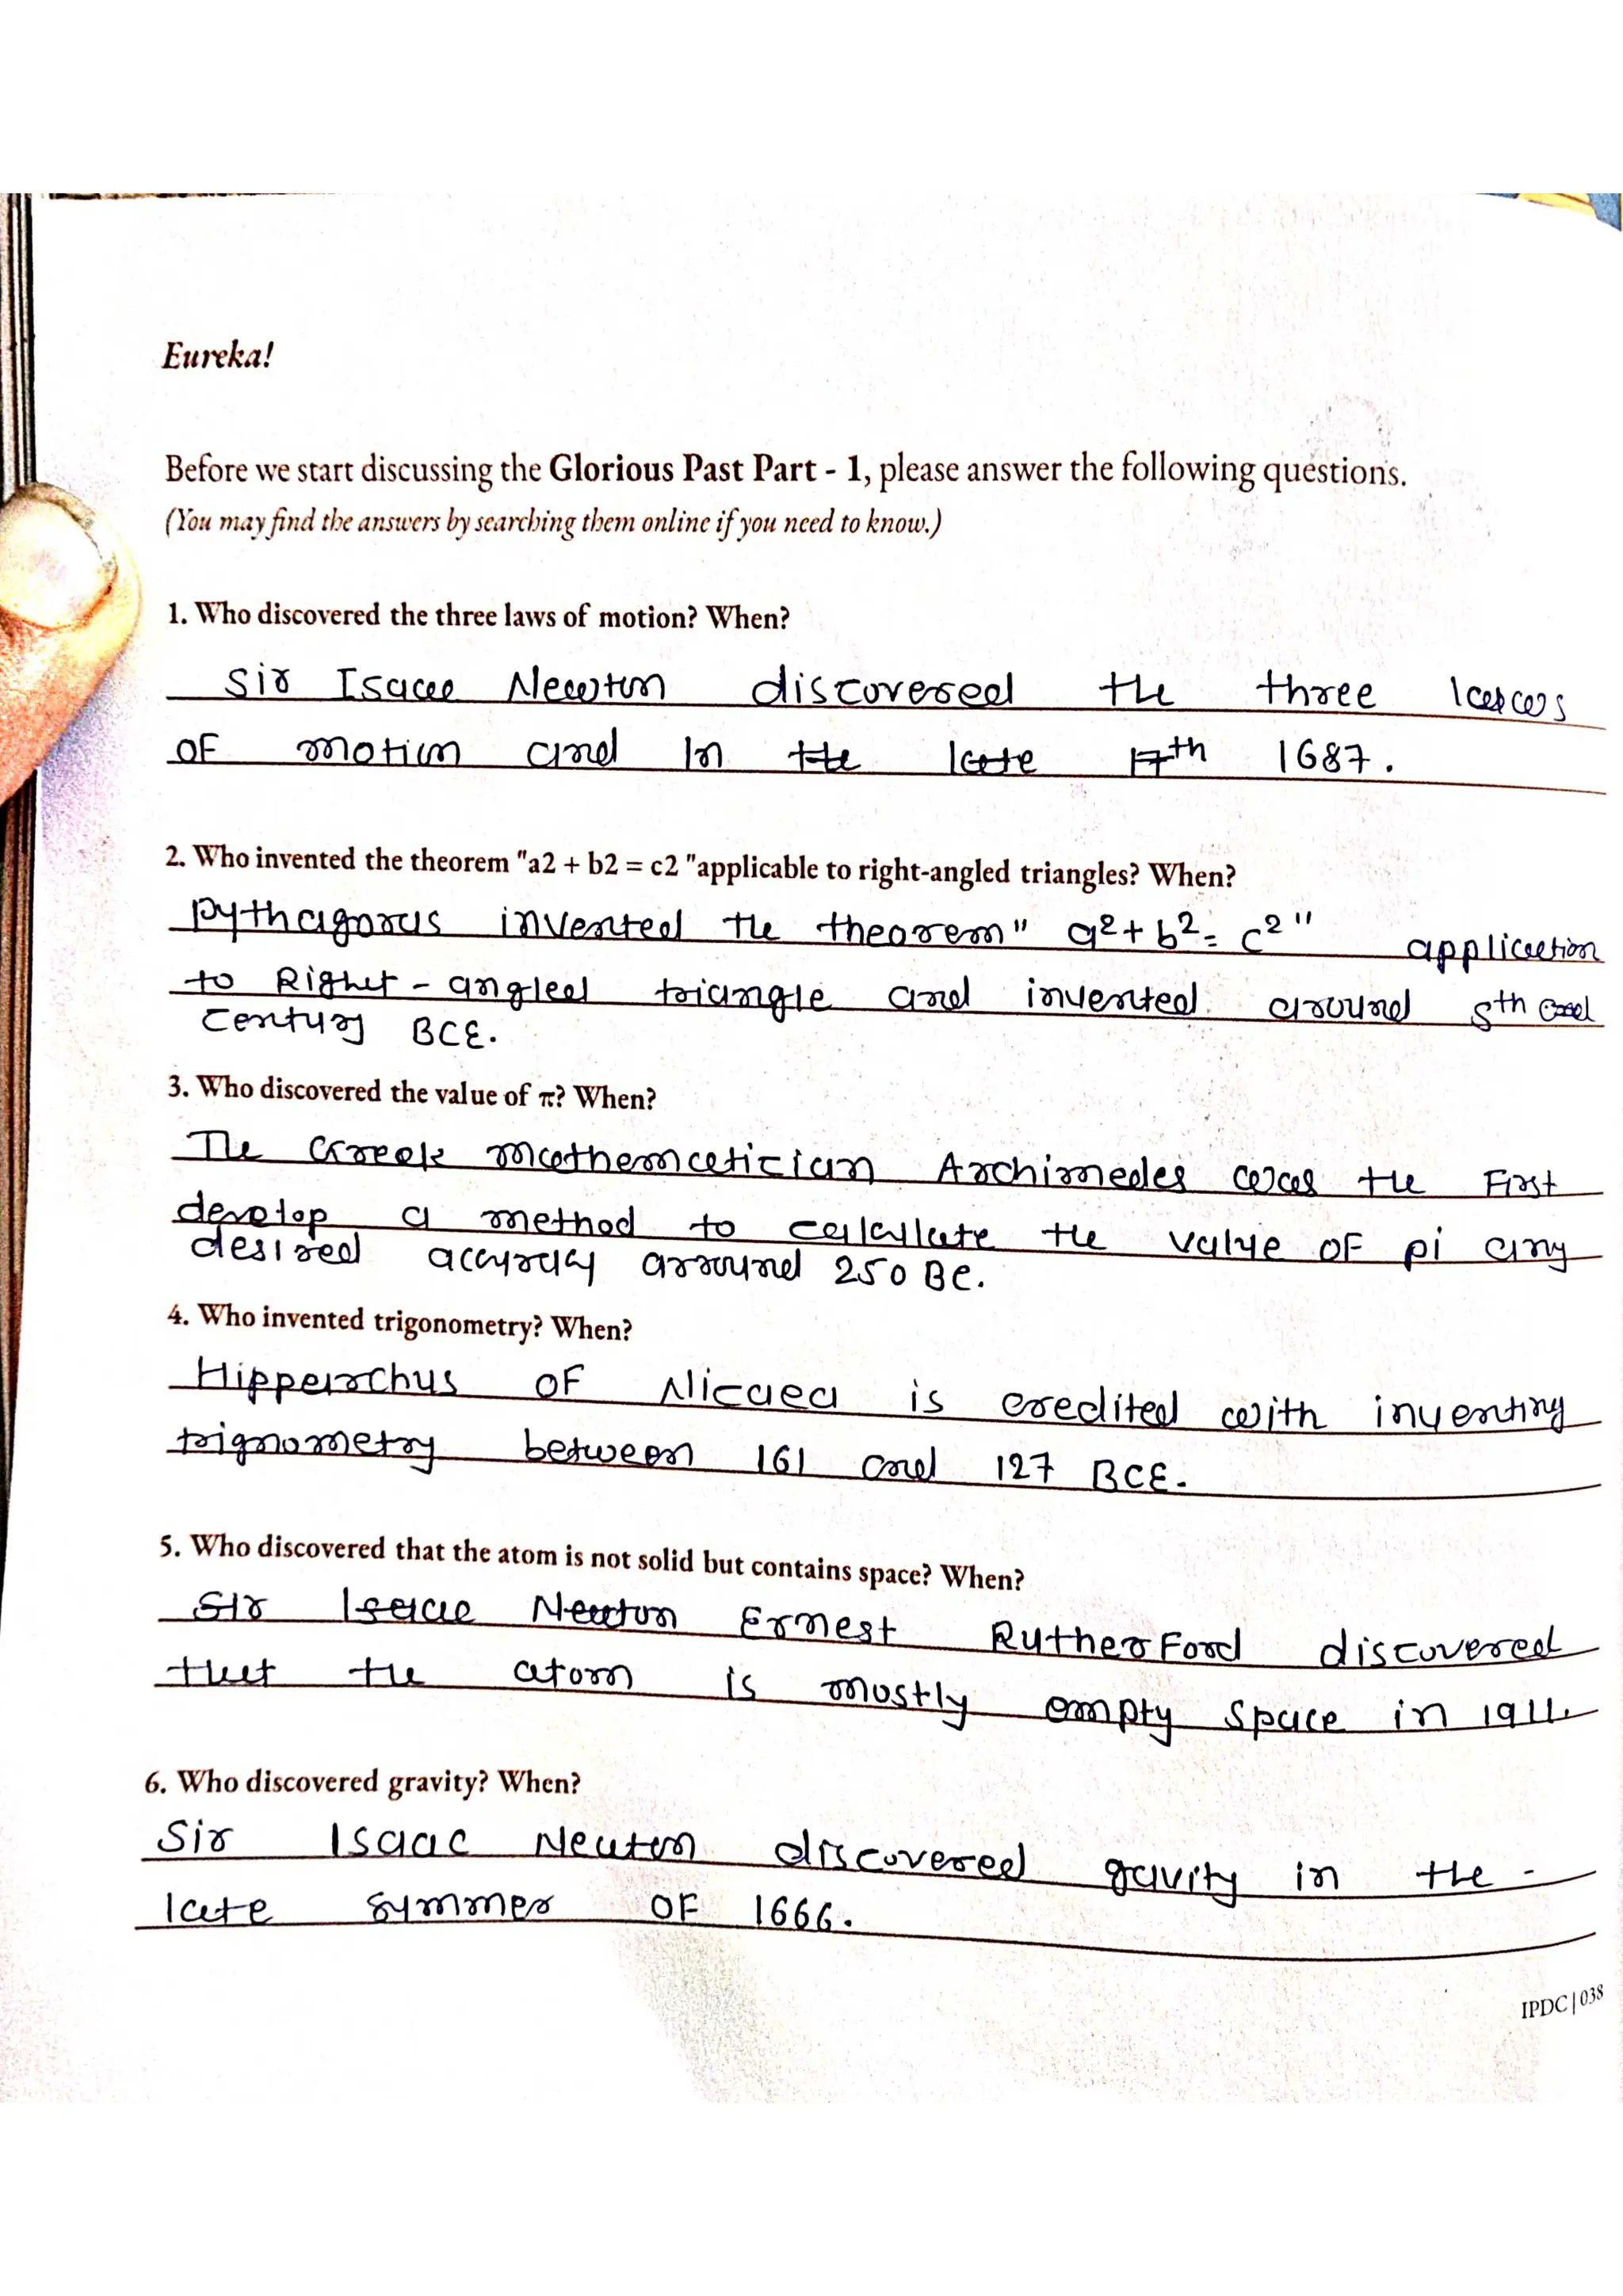 Eureka!
Before we start discussing the Glorious Past Part - 1, please answer the following questions.
(You may find the answers by searching them online if you need to know.)
1. Who discovered the three laws of motion? When?
Sir Isacc Newton discovered the three laws
OF motion and In the late 17th 1687.
2. Who invented the theorem "a2 + b2 = c2 "applicable to right-angled triangles? When?
Pythagoras invented the theorem" a²+b²= c²" application
to Right - angled triangle and invented around 5th
century BCE.
3. Who discovered the value of π? When?
The Greek mathematician Archimedes was the First
develop a method to calculate the value OF pi any
desired accuracy around 250 BC.
4. Who invented trigonometry? When?
Hipparchus OF Nicaea is credited with inventing
trignometry between 161 and 127 BCE.
5. Who discovered that the atom is not solid but contains space? When?
Sir Isaac Newton Ernest RutherFord discovered
that the atom is mostly empty space in 1911.
6. Who discovered gravity? When?
Sir Isaac Newton discovered gavity in the -
late summer OF 1666.
IPDC | 038